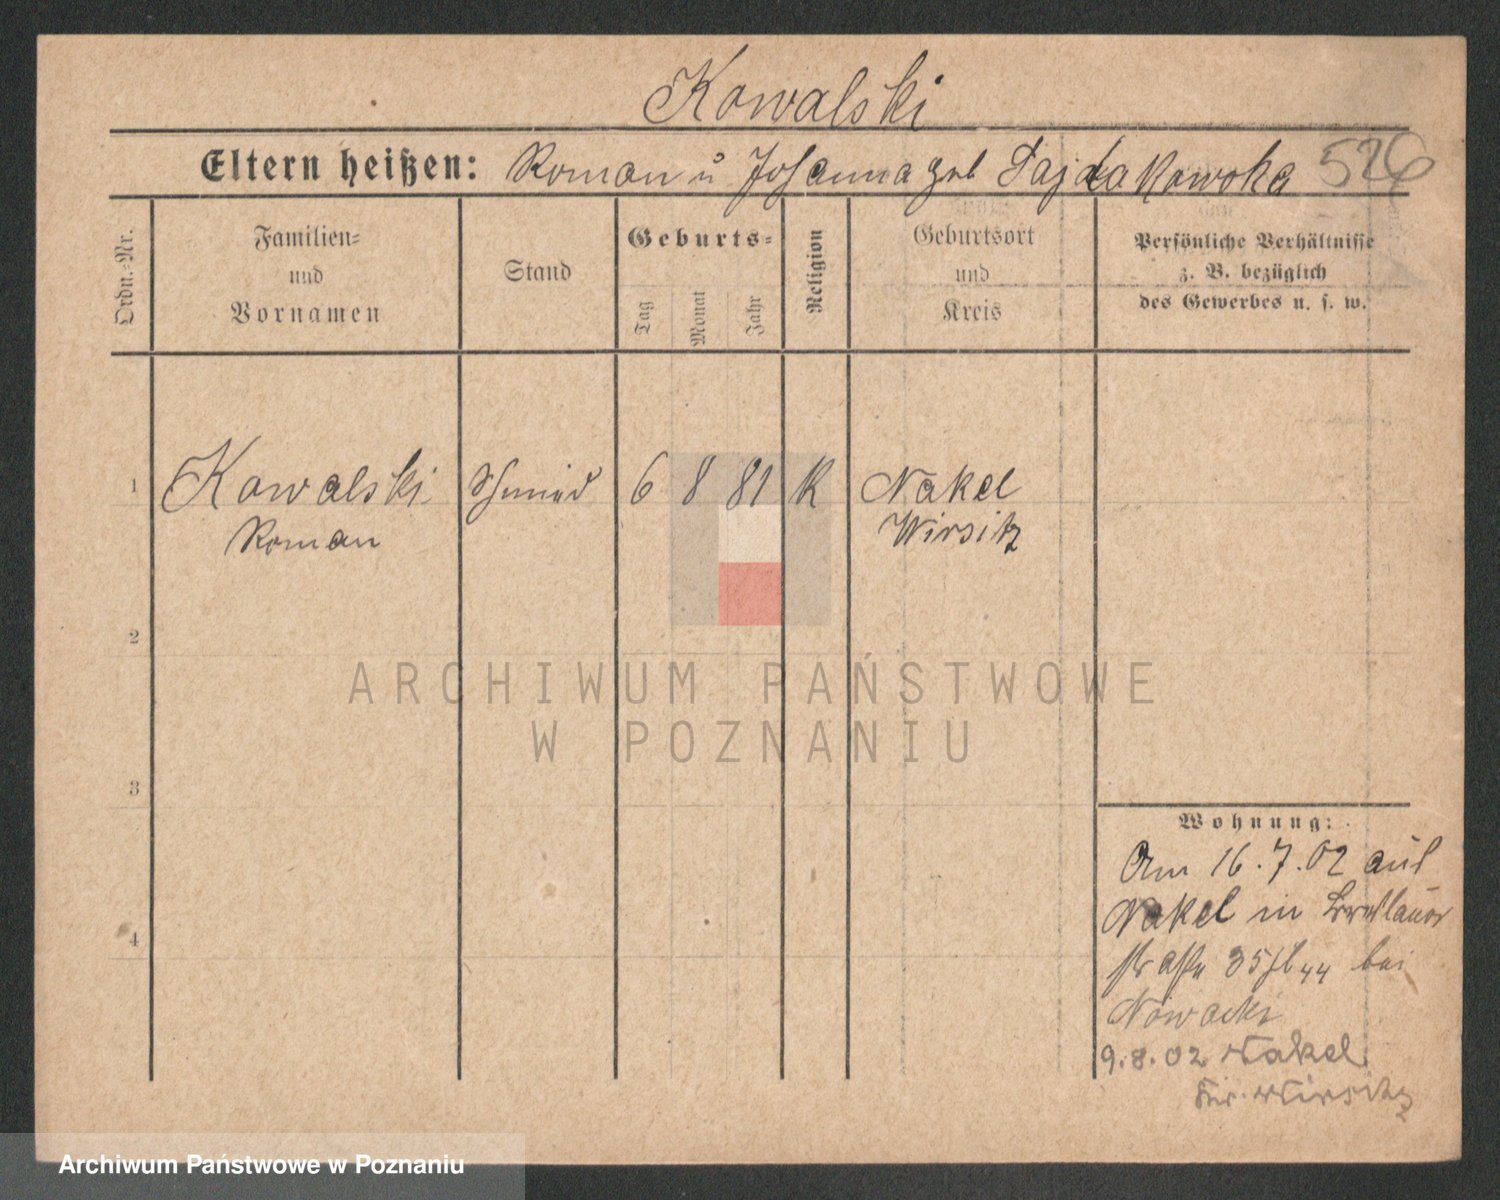 Kowalski
Eltern heißen: Roman u Johanna geb Fajdakowska 526
Ordn.-Nr.
Familien-
und
Vornamen
Stand
Geburts-
Tag
Monat
Jahr
Religion
Geburtsort
und
Kreis
Persönliche Verhältnisse
z. B. bezüglich
des Gewerbes u. s. w.
1 Kowalski Schmied 6 8 81 K Nakel
Roman Wirsitz
2
3
4
Wohnung:
Am 16.7.02 aus
Nakel in Breslauer
straße 35 bei
Nowacki
9.8.02 Nakel
Kr. Wirsitz
ARCHIWUM PAŃSTWOWE
W POZNANIU
Archiwum Państwowe w Poznaniu